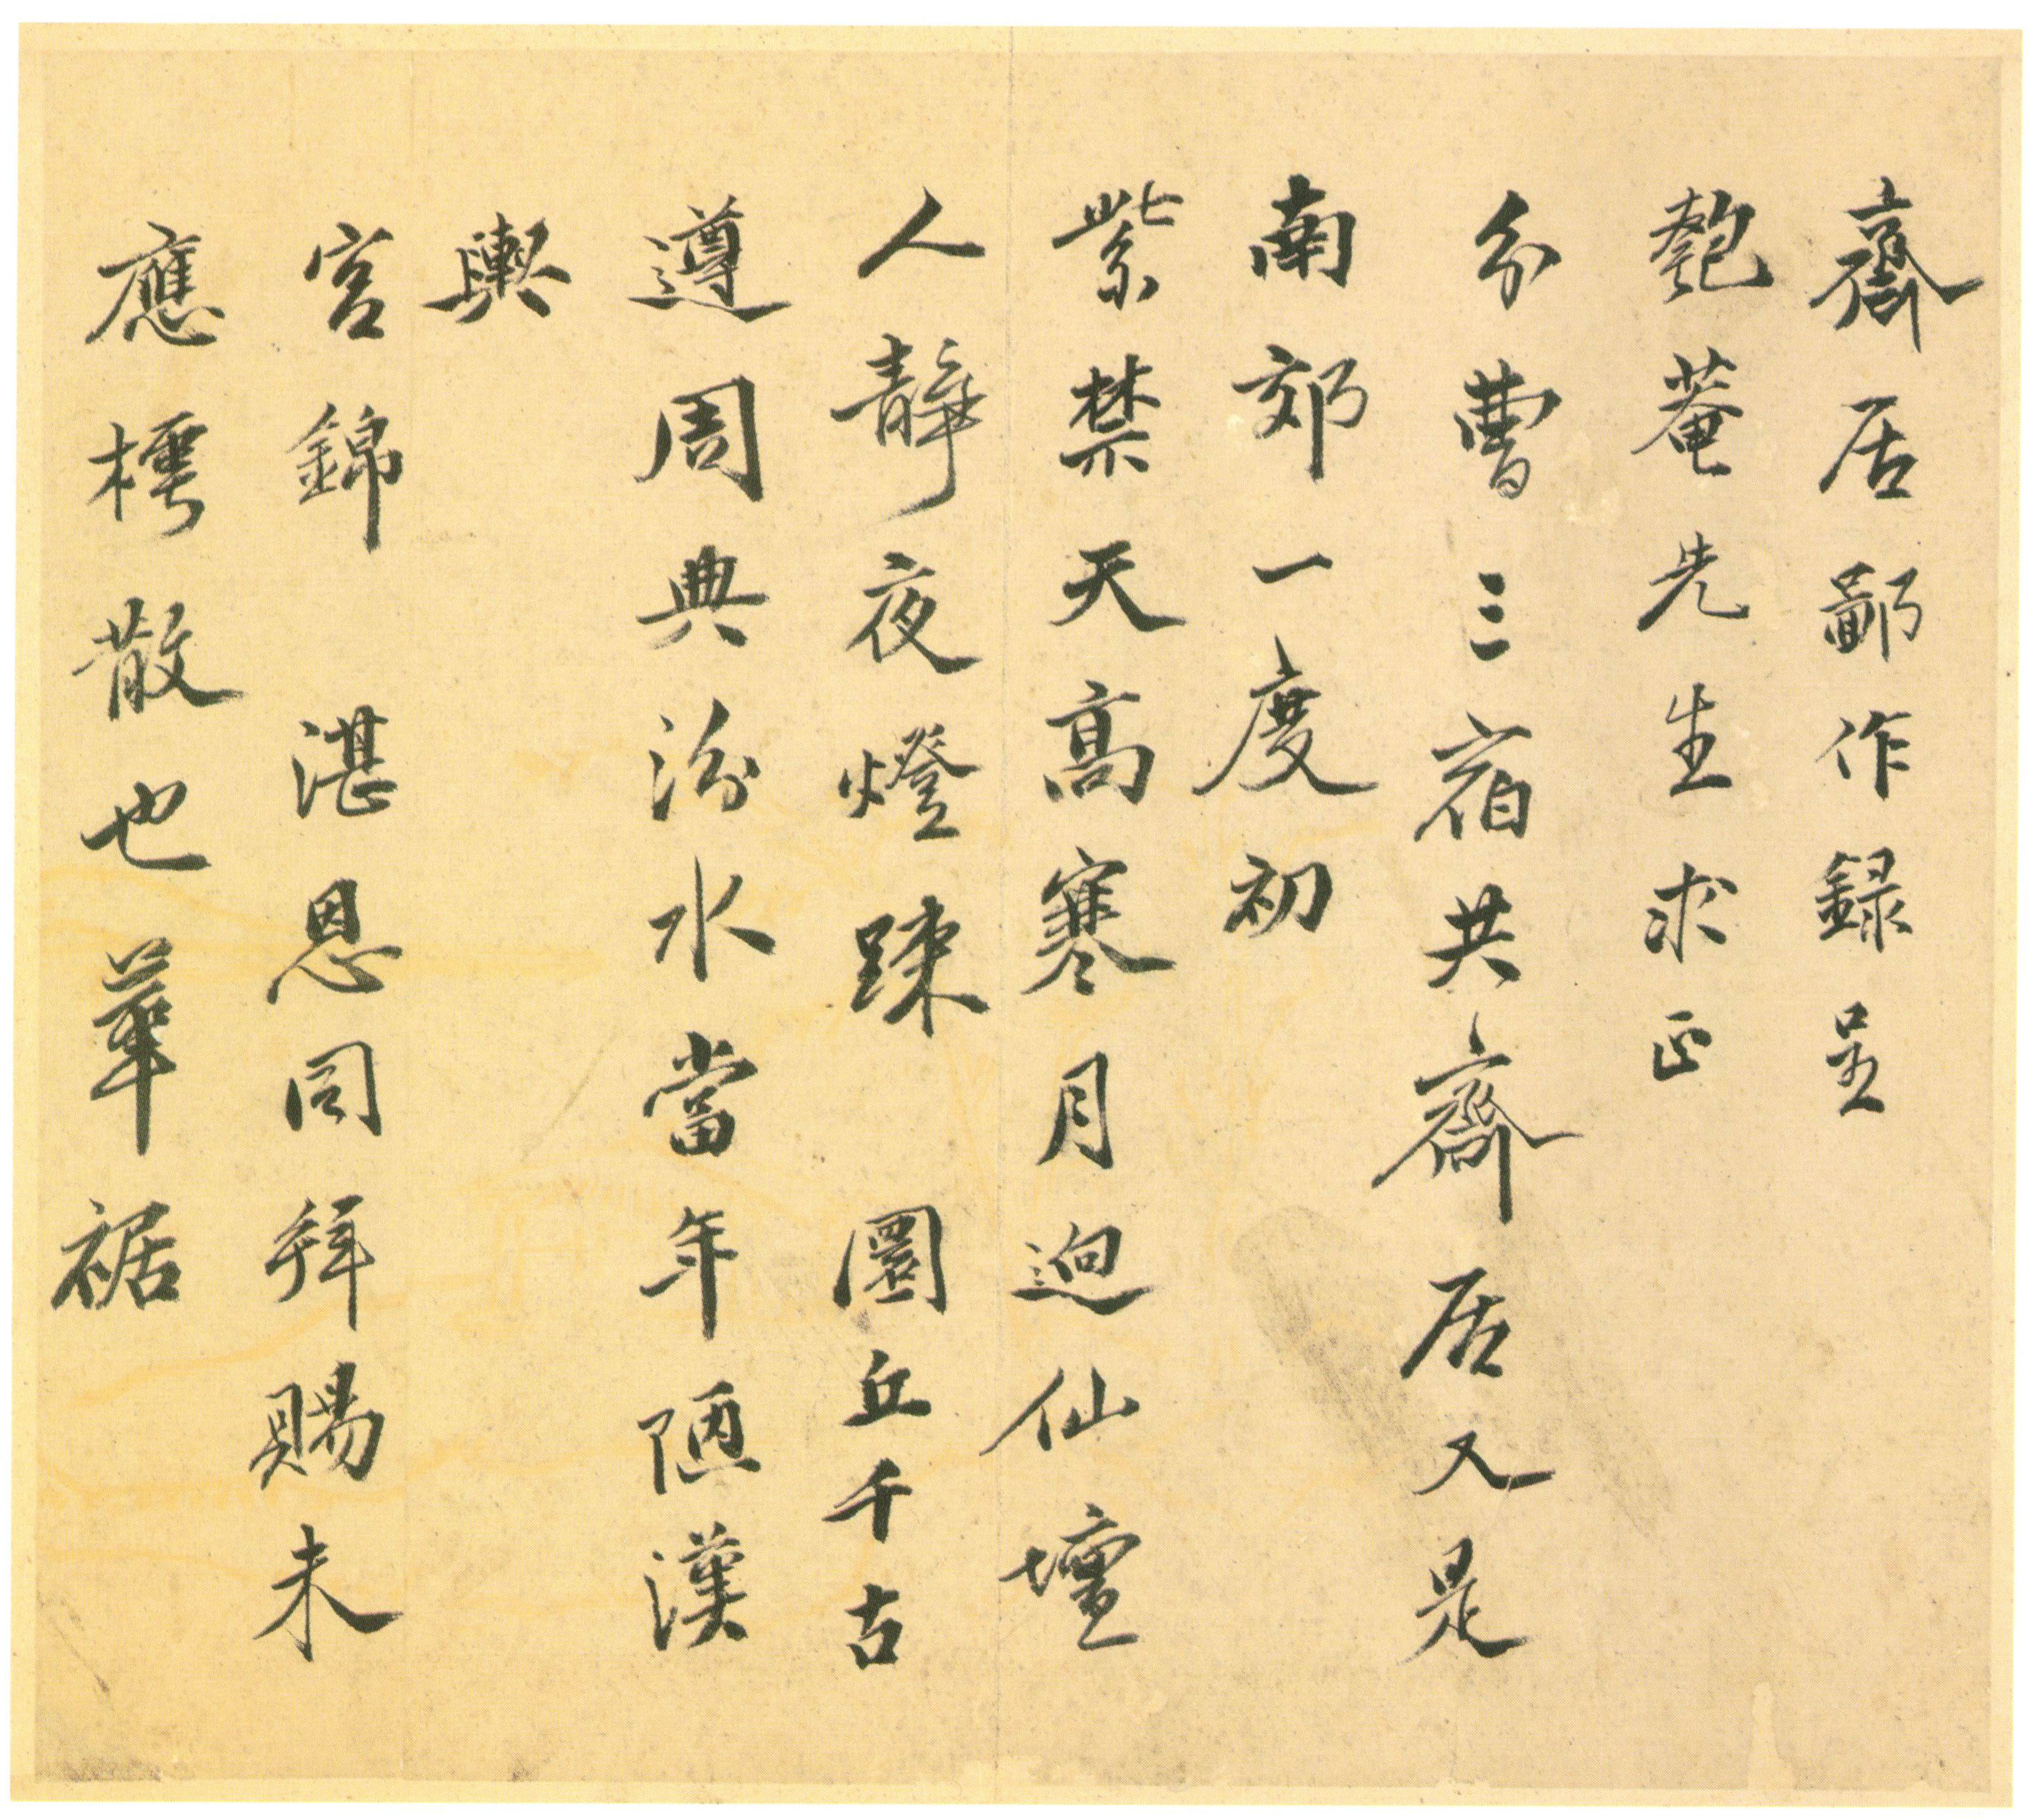 齋居鄙作録呈
匏菴先生求正
分曹三宿共齋居又是
南郊一度初
紫禁天高寒月迥仙壇
人靜夜燈踈圜丘千古
遵周典汾水當年陋漢
輿
宮錦湛恩同拜賜未
應樗散也華裾